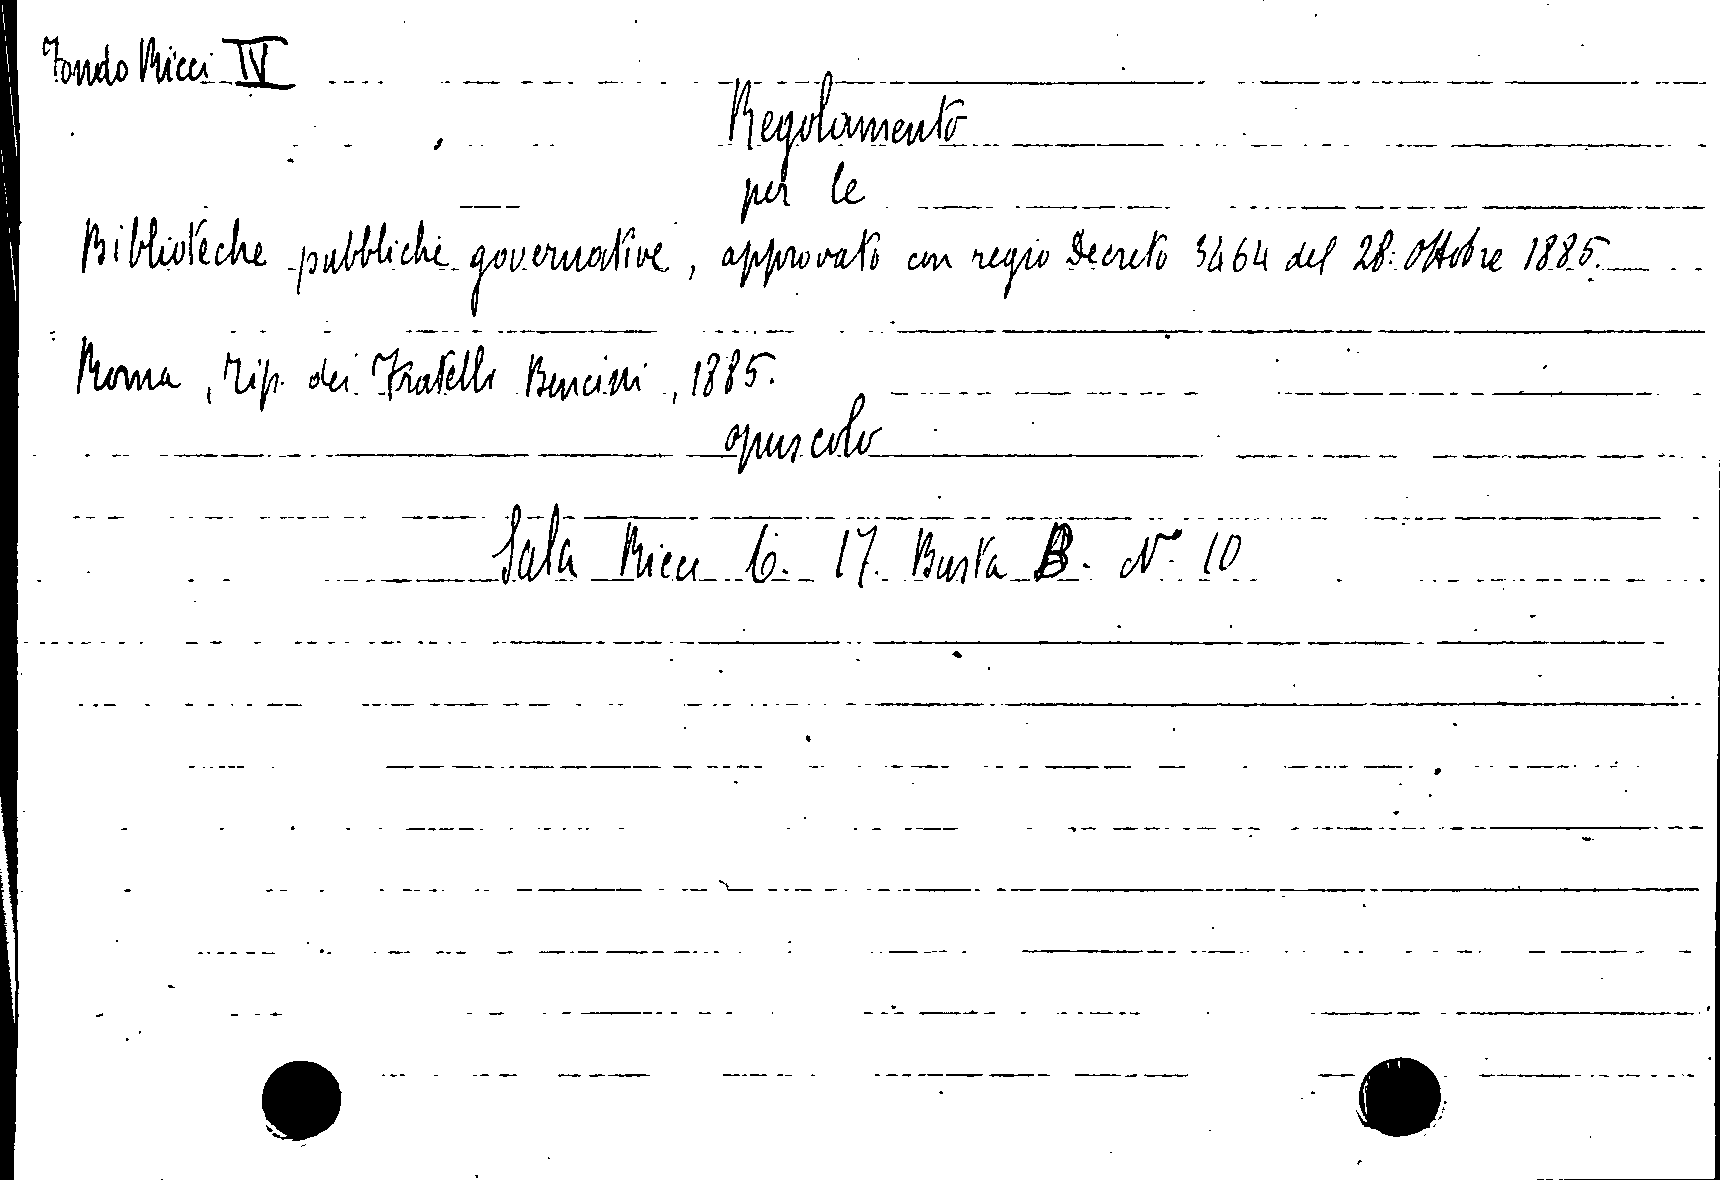 Fondo Ricci IV
Regolamento
per le
Biblioteche pubbliche governative, approvato con regio Decreto 3464 del 28 ottobre 1885.
Roma, Tip. dei Fratelli Bencini, 1885.
opuscolo
Sala Ricci 6. 17. Busta B. N° 10